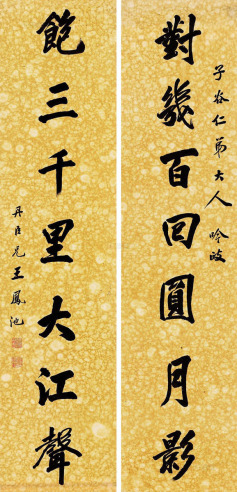 子谷仁弟大人吟政
對幾百回圓月影
飽三千里大江聲
丹臣兄王鳳池